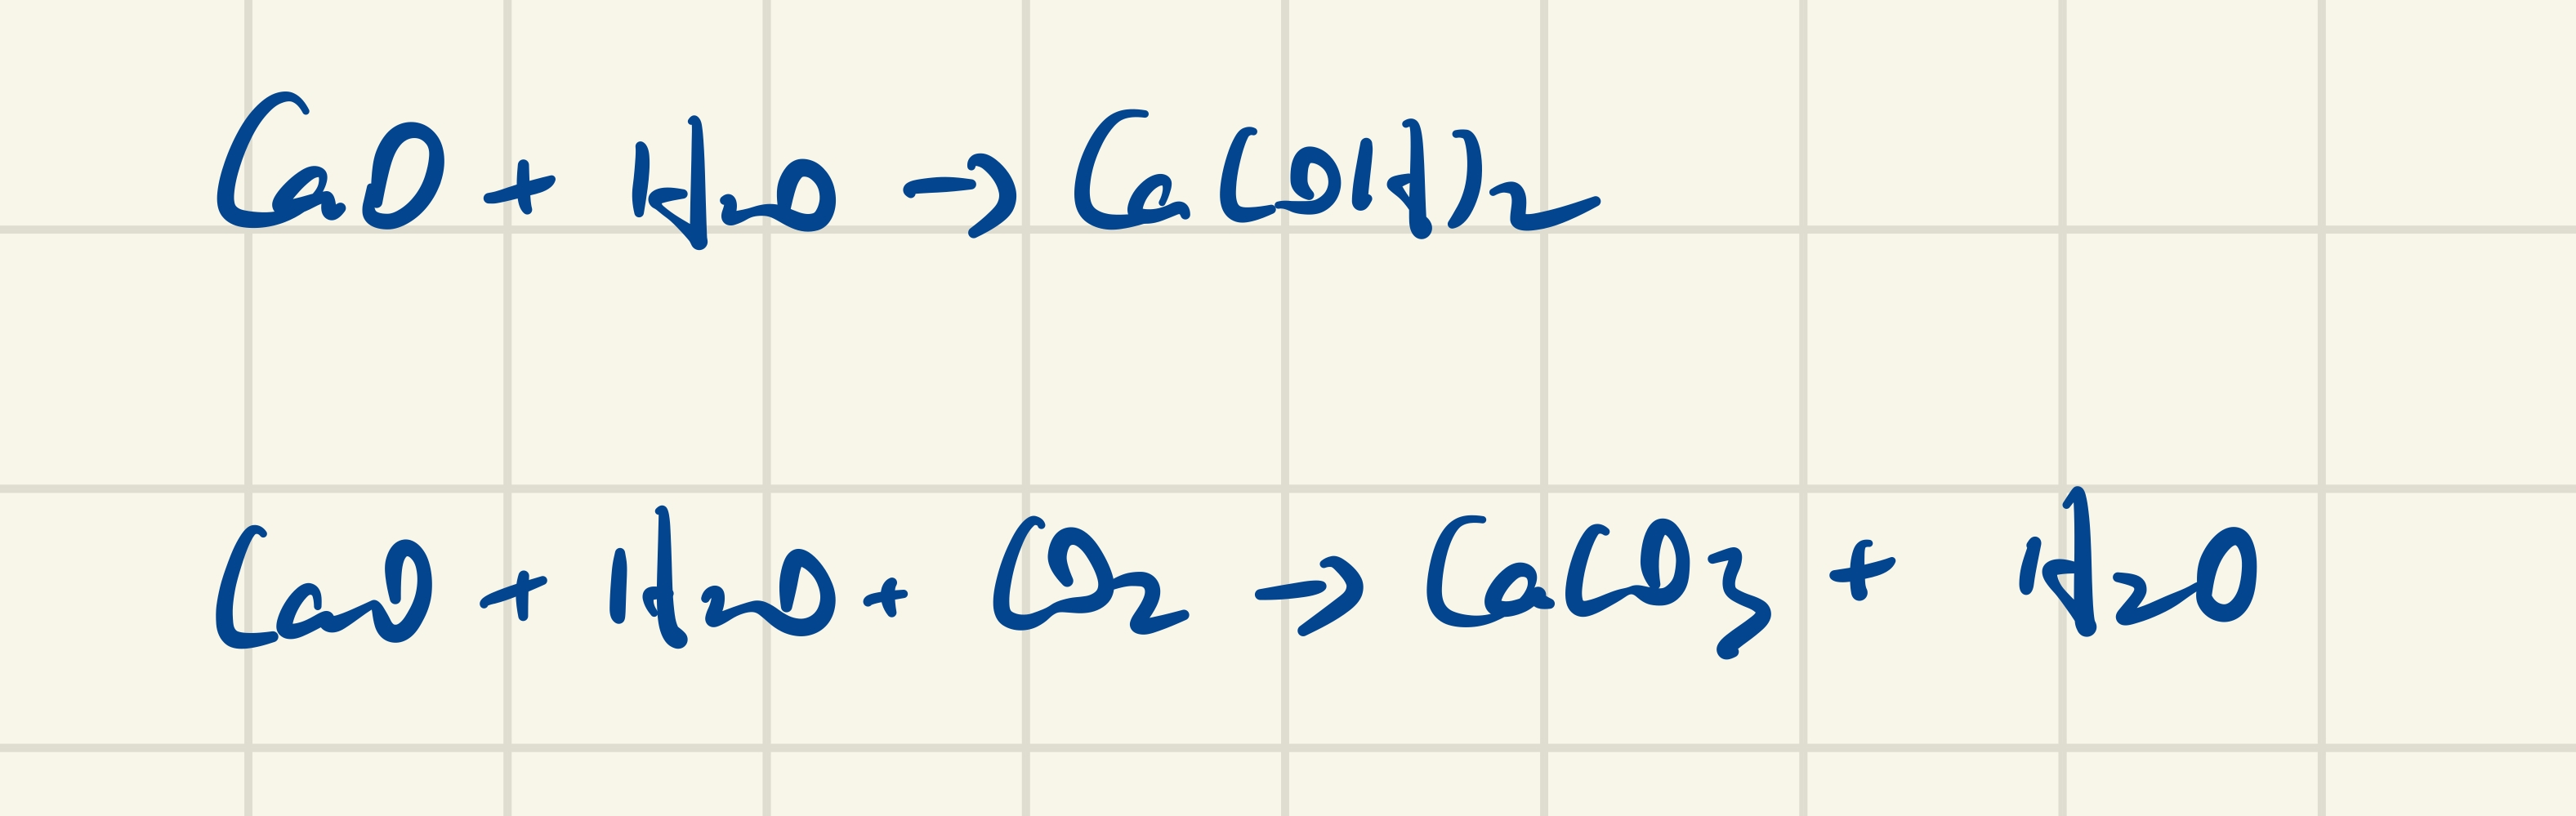 CaO + H2O → Ca(OH)2
CaO + H2O + CO2 → CaCO3 + H2O